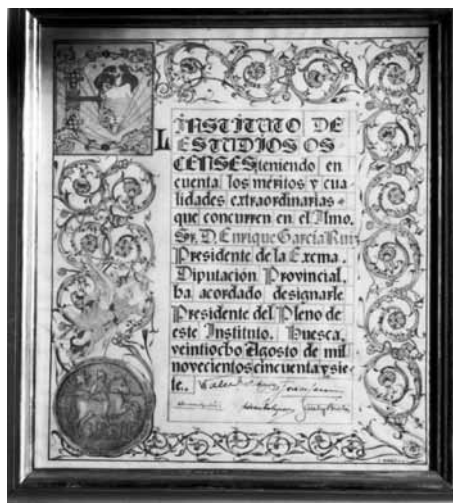 EL
INSTITUTO DE
ESTUDIOS OS
CENSES teniendo en
cuenta los méritos y cua
lidades extraordinarias
que concurren en el Ilmo.
Sr. D. Enrique García Ruiz
Presidente de la Excma.
Diputación Provincial,
ha acordado designarle
Presidente del Pleno de
este Instituto. Huesca,
veintiocho Agosto de mil
novecientos cincuenta y sie
te..